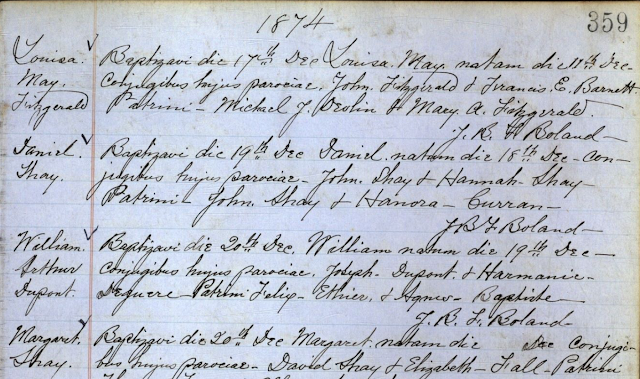 1874
359
Louisa.
May.
Fitzgerald
Baptizavi die 17th Dec Louisa. May. natam die 11th Dec-
conjugibus hujus parociae. John. Fitzgerald & Francis. E. Barnett
Patrini- Michael J. Devlin & Mary. A. Fitzgerald.
J. B. F. Boland-
Daniel.
Shay.
Baptizavi die 19th Dec Daniel. natum die 18th Dec- con-
jugibus hujus parociae- John. Shay & Hannah- Shay-
Patrini- John, Shay & Hanora- Curran-
J B F Boland-
William.
Arthur
Dupont.
Baptizavi die 20th Dec. William natum die 19th Dec-
conjugibus hujus parociae. Joseph- Dupont. & Harmanie-
Deguere- Patrini Felix- Ethier, & Agnes- Baptiste-
J. B. F. Boland-
Margaret.
Shay.
Baptizavi die 20th Dec Margaret. natam die Dec Conjugi-
bus hujus parociae- David Shay & Elizabeth- Fall- Patrini